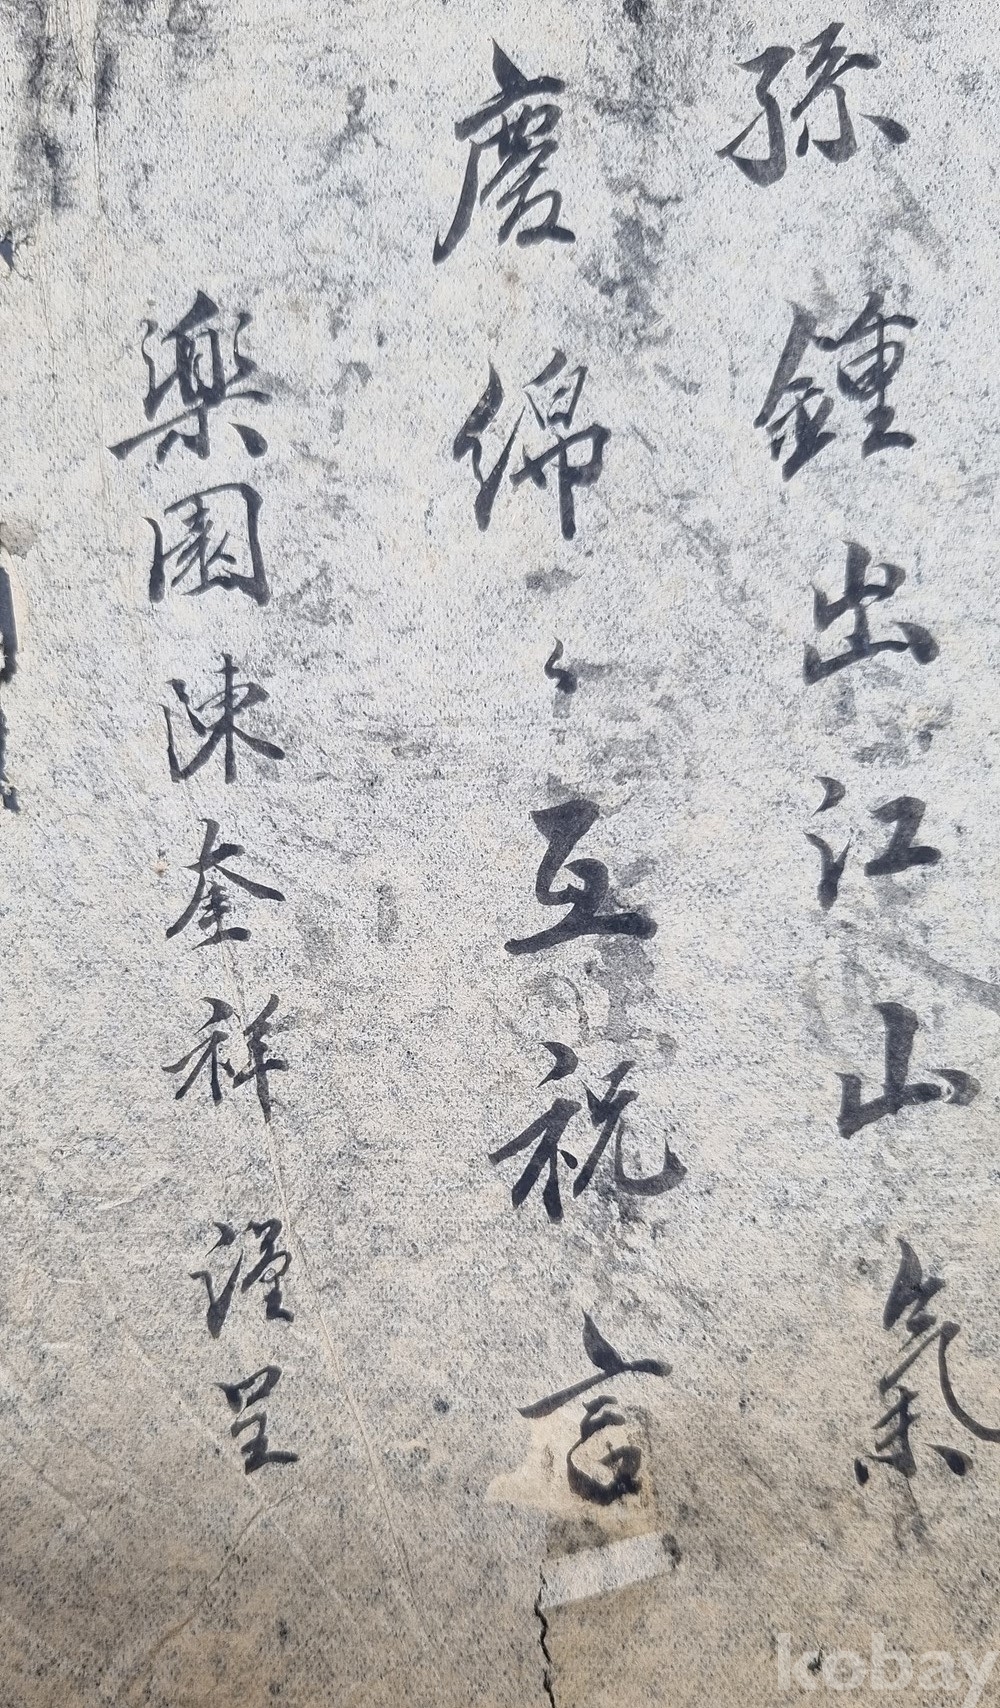 孫鍾出江山氣
慶綿〻互祝言
樂園陳奎祥謹呈
kobay